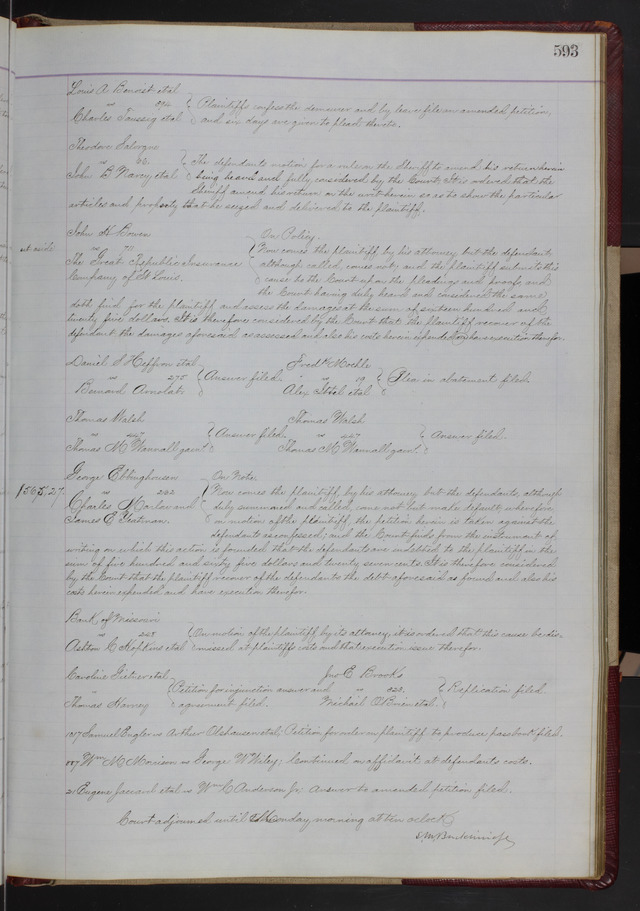 593
Louis A. Benoist et al
vs
Charles Taussig et al
Plaintiffs confess the demurrer and by leave file an amended petition,
and six days are given to plead thereto.
Theodore
vs
John B et al
The defendants motion for a rule on the Sheriff to amend his return herein
being heard and fully considered by the Court; It is ordered that the
Sheriff amend his return on the writ herein so as to show the particular
articles and property that he seized and delivered to the plaintiff.
set aside
John H Bowen
vs
The Great Republic Insurance
Company of St Louis.
On Policy
Now comes the plaintiff by his attorney but the defendant
although called, comes not; and the plaintiff submits this
cause to the Court upon the pleadings and proofs, and
the Court having duly heard and considered the same
doth find for the plaintiff and assess the damages at the sum of sixteen hundred and
twenty five dollars. It is therefore considered by the Court that the plaintiff recover of the
defendant the damages aforesaid as assessed and also his costs herein expended and have execution therefor.
Daniel S Heffron et al
vs 275
Bernard Arnolats
Answer filed.
Fredk
vs 19
Alex et al
Plea in abatement filed.
Thomas Walsh
vs 227
Thomas M Wannall garnt.
Answer filed.
Thomas Walsh
vs 227
Thomas M Wannall garnt.
Answer filed.
$565.27
George Ebbinghousen
vs 232
Charles and
James E Yeatman.
On Note.
Now comes the plaintiff by his attorney but the defendants, although
duly summoned and called, come not but make default; wherefore
on motion of the plaintiff, the petition herein is taken against the
defendants as confessed; and the Court finds from the instrument of
writing on which this action is founded that the defendants are indebted to the plaintiff in the
sum of five hundred and sixty five dollars and twenty seven cents. It is therefore considered
by the Court that the plaintiff recover of the defendants the debt aforesaid as found and also his
costs herein expended and have execution therefor.
Bank of Missouri
vs 248
Ashton C Hopkins et al
On motion of the plaintiff by its attorney, it is ordered that this cause be dis-
missed at plaintiffs costs and that execution issue therefor.
Caroline et al
vs
Thomas Harney
Petition for injunction answer and
agreement filed.
Jno E Brooks
vs 323
Michael O'Brien et al.
Replication filed.
Samuel Engler vs Arthur Olshausen et al; Petition for rule on plaintiff to produce pass book filed.
Wm M Morrison vs George W Wiley; Continued on affidavit at defendants costs.
21 Eugene Jaccard et al vs Wm C Anderson Jr; Answer to amended petition filed.
Court adjourned until Monday morning at ten oclock
S. M. Breckinridge